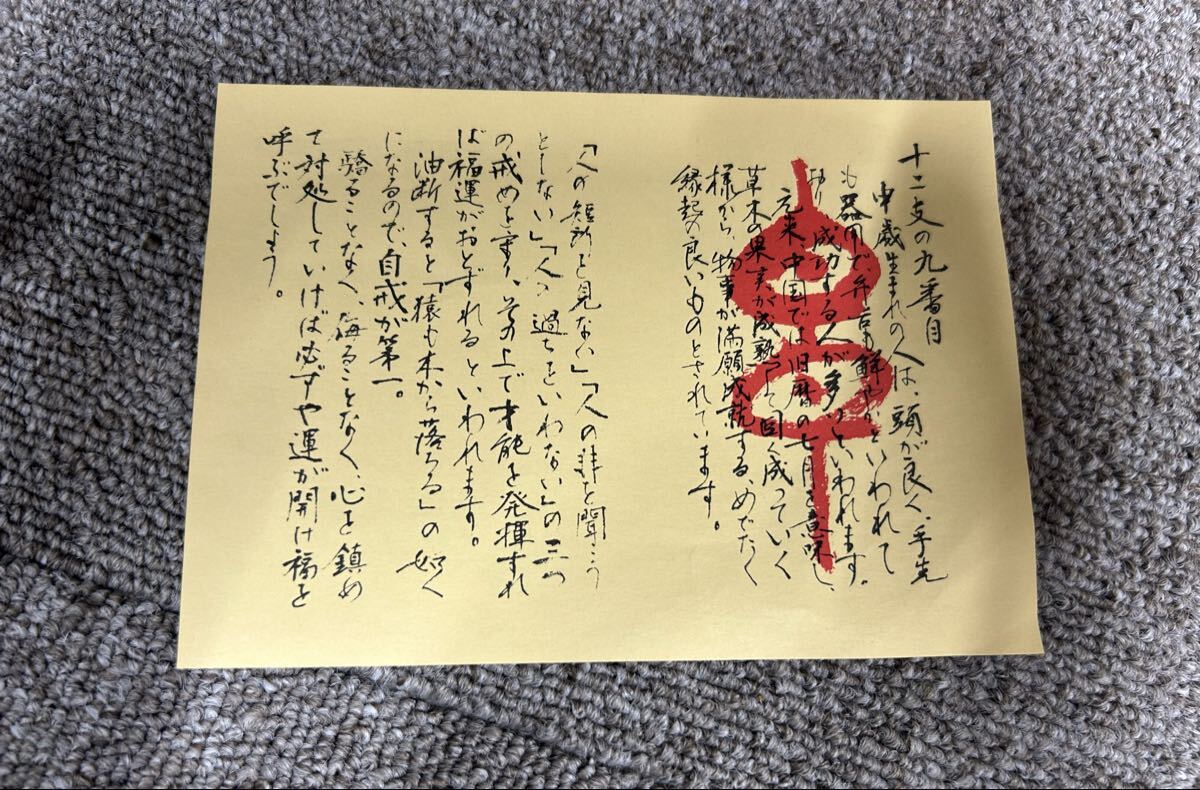 十二支の九番目
申歳生まれの人は、頭が良く、手先
も器用で弁舌も鮮やかといわれて
おり、成功する人が多いといわれます。
元来中国では旧暦の七月を意味し、
草木の果実が成熟して固く成っていく
様から、物事が満願成就する、めでたく
縁起の良いものとされています。
「人の短所を見ない」「人の非を聞こう
としない」「人の過ちをいわない」の三つ
の戒めを守り、その上で才能を発揮すれ
ば福運がおとずれるといわれます。
油断すると「猿も木から落ちる」の如く
になるので、自戒が第一。
驕ることなく、侮ることなく、心を鎮め
て対処していけば必ずや運が開け福を
呼ぶでしょう。